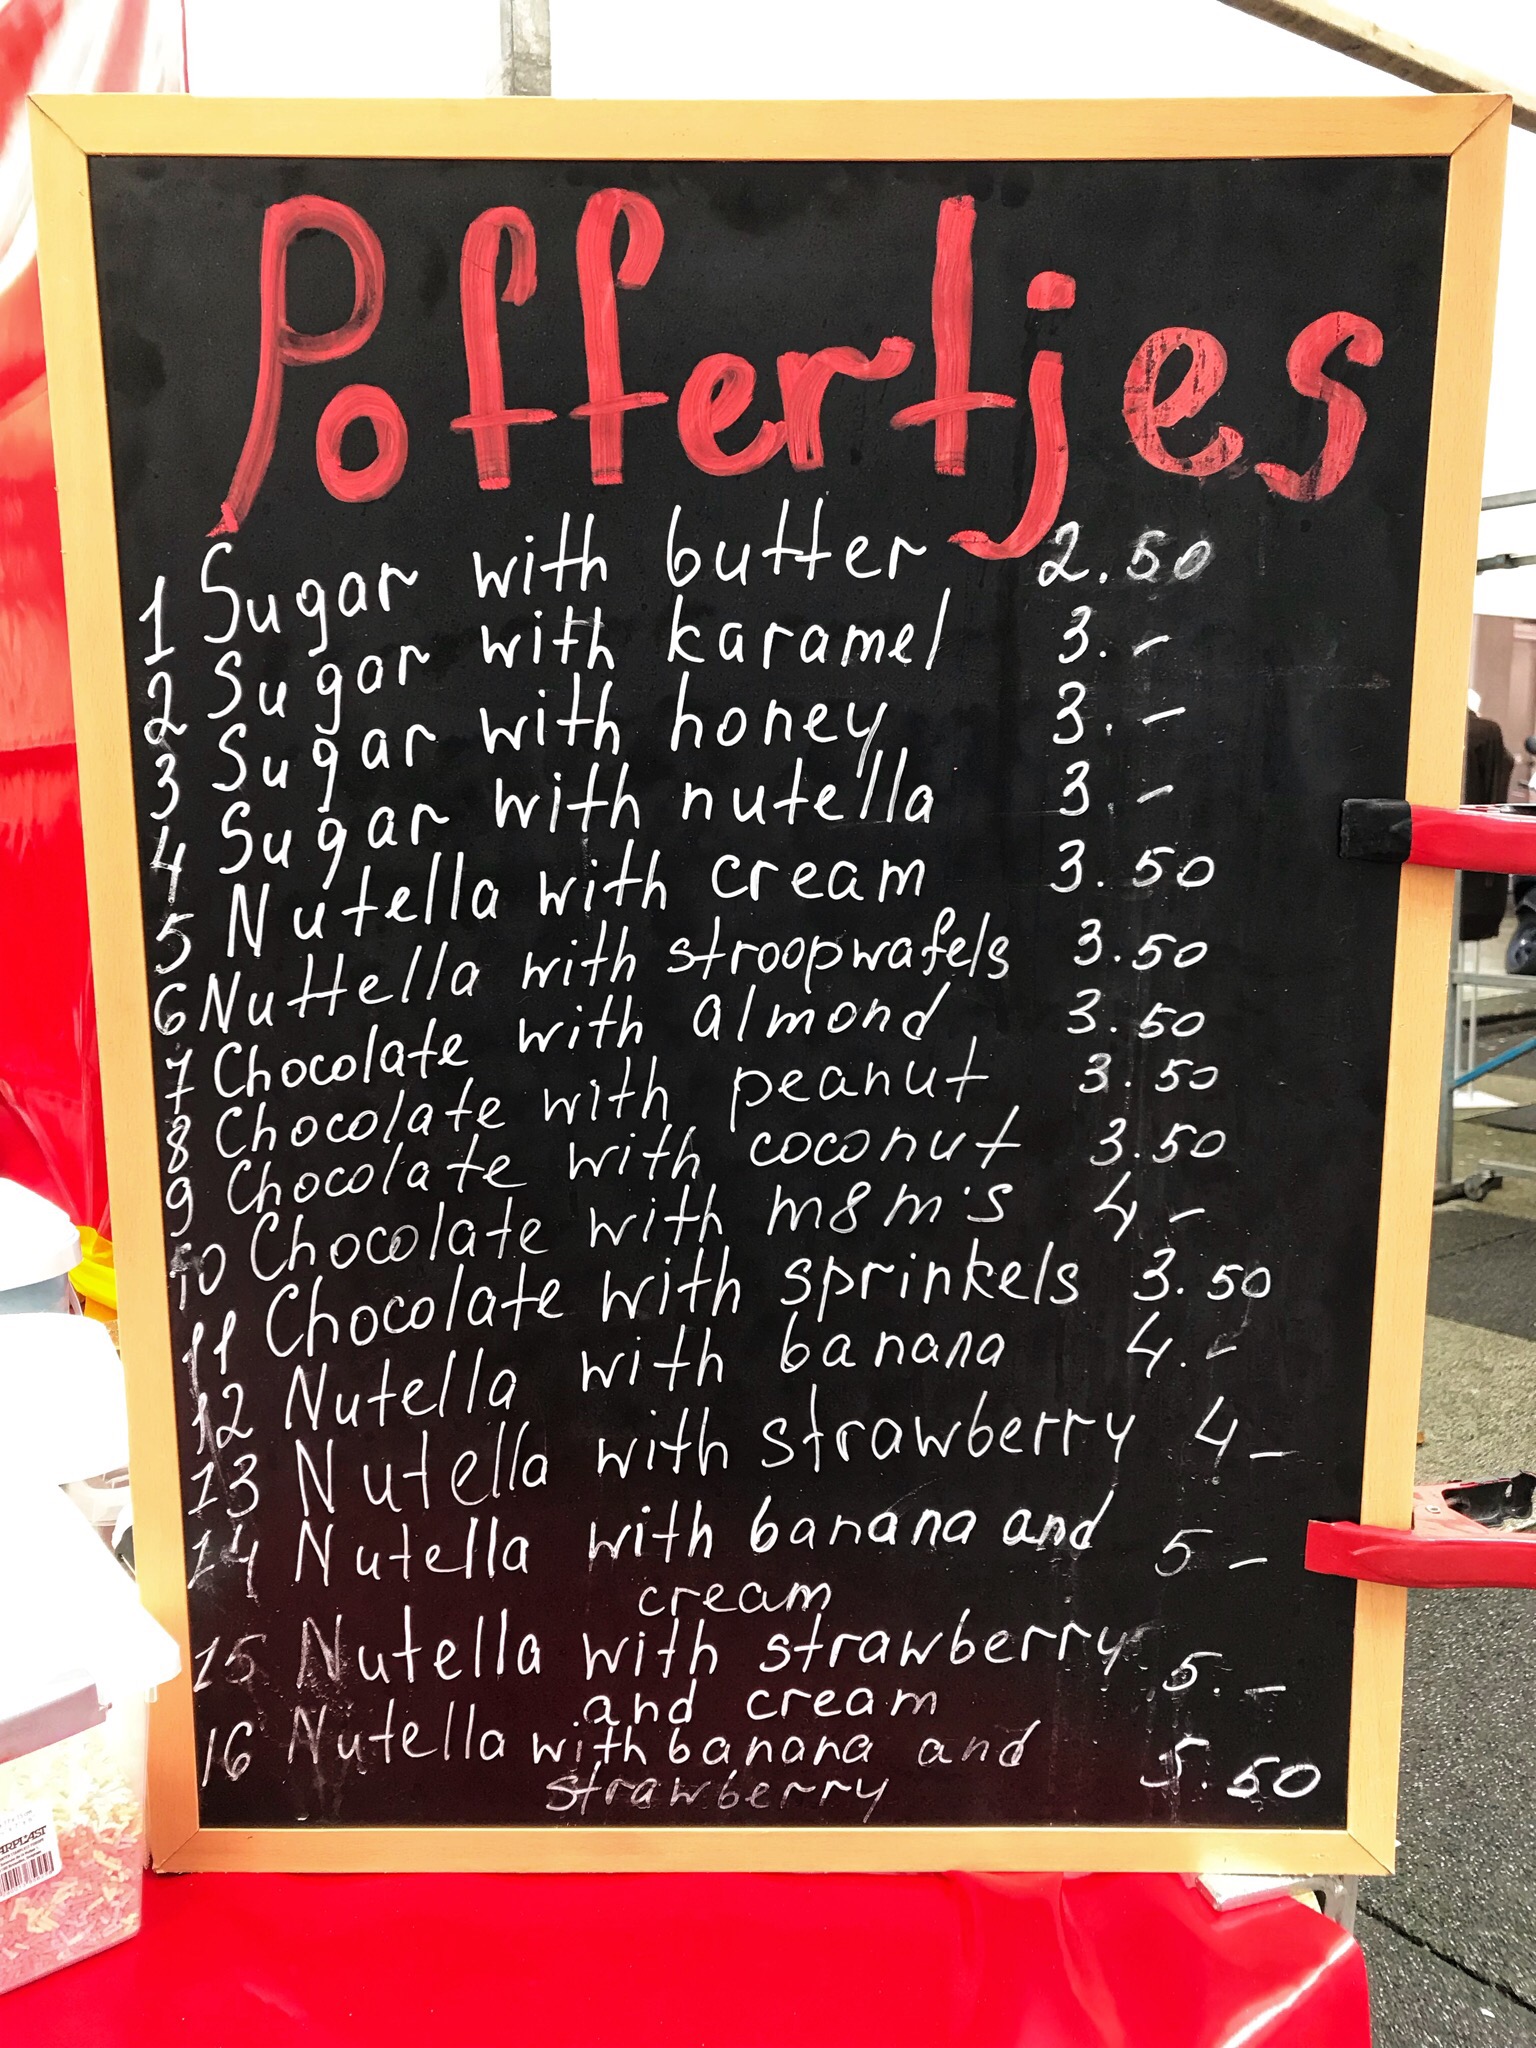 Poffertjes
1 Sugar with butter 2.50
2 Sugar with karamel 3.-
3 Sugar with honey 3.-
4 Sugar with nutella 3.-
5 Nutella with cream 3.50
6 Nuttella with stroopwafels 3.50
7 Chocolate with almond 3.50
8 Chocolate with peanut 3.50
9 Chocolate with coconut 3.50
10 Chocolate with m&m's 4-
11 Chocolate with sprinkels 3.50
12 Nutella with banana 4.-
13 Nutella with strawberry 4-
14 Nutella with banana and 5-
cream
15 Nutella with strawberry 5.-
and cream
16 Nutella with banana and 5.50
strawberry